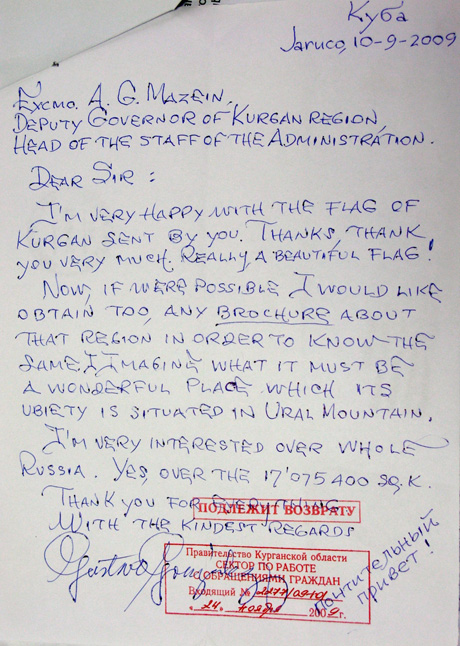 Куба
Jaruco, 10-9-2009
Excmo. A. G. Mazein,
Deputy Governor of Kurgan Region,
Head of the Staff of the Administration.
Dear Sir :
I'm very happy with the flag of
Kurgan sent by you. Thanks, thank
you very much. Really, a beautiful flag!
Now, if were possible I would like
obtain too, any brochure about
that region in order to know the
same. I imagine what it must be
a wonderful place which its
ubiety is situated in Ural Mountain.
I'm very interested over whole
Russia. Yes, over the 17'075 400 sq. k.
Thank you for everything
ПОДЛЕЖИТ ВОЗВРАТУ
With the kindest regards
Gustavo
почтительный
привет!
Правительство Курганской области
СЕКТОР ПО РАБОТЕ
С ОБРАЩЕНИЯМИ ГРАЖДАН
Входящий №
« 24 » ноября 2009 г.